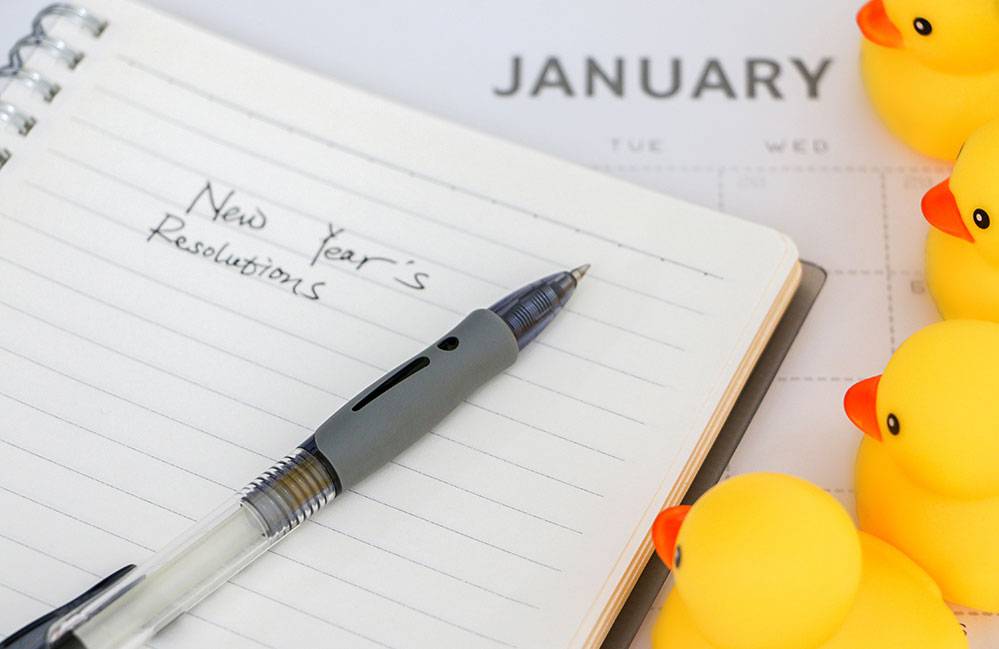 JANUARY
TUE WED
New Year's
Resolutions